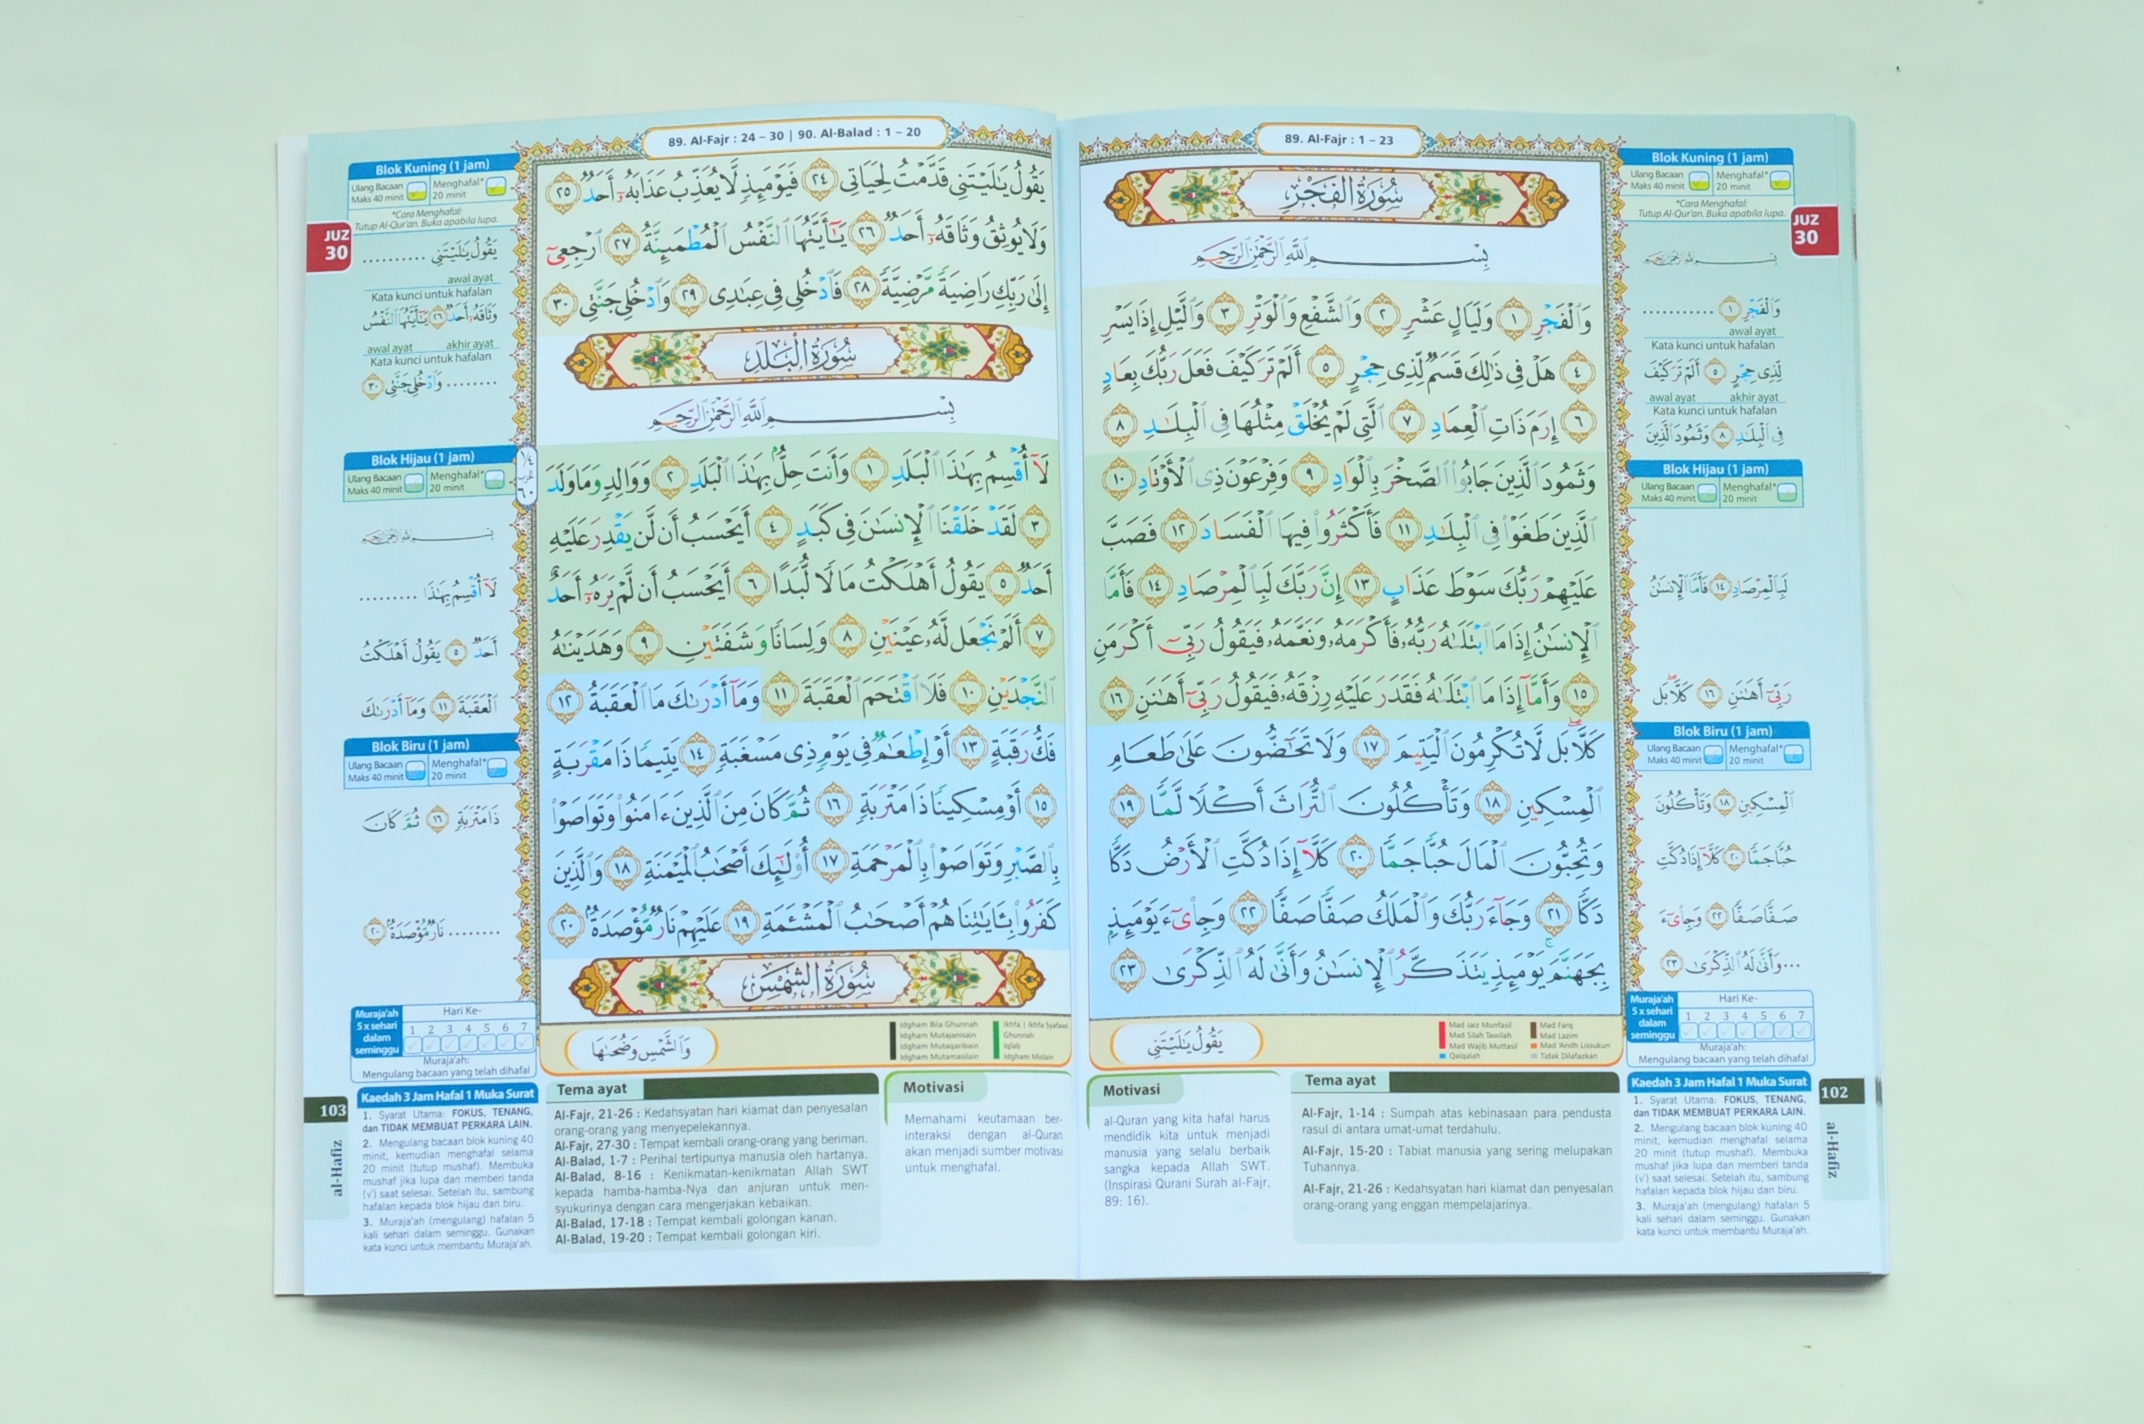 89. Al-Fajr : 1 – 23
سُورَةُ الفَجْرِ
بِسْمِ ٱللَّهِ ٱلرَّحْمَٰنِ ٱلرَّحِيمِ
وَٱلْفَجْرِ ١ وَلَيَالٍ عَشْرٍ ٢ وَٱلشَّفْعِ وَٱلْوَتْرِ ٣ وَٱلَّيْلِ إِذَا يَسْرِ
٤ هَلْ فِى ذَٰلِكَ قَسَمٌ لِّذِى حِجْرٍ ٥ أَلَمْ تَرَ كَيْفَ فَعَلَ رَبُّكَ بِعَادٍ
٦ إِرَمَ ذَاتِ ٱلْعِمَادِ ٧ ٱلَّتِى لَمْ يُخْلَقْ مِثْلُهَا فِى ٱلْبِلَٰدِ ٨
وَثَمُودَ ٱلَّذِينَ جَابُوا۟ ٱلصَّخْرَ بِٱلْوَادِ ٩ وَفِرْعَوْنَ ذِى ٱلْأَوْتَادِ ١٠
ٱلَّذِينَ طَغَوْا۟ فِى ٱلْبِلَٰدِ ١١ فَأَكْثَرُوا۟ فِيهَا ٱلْفَسَادَ ١٢ فَصَبَّ
عَلَيْهِمْ رَبُّكَ سَوْطَ عَذَابٍ ١٣ إِنَّ رَبَّكَ لَبِٱلْمِرْصَادِ ١٤ فَأَمَّا
ٱلْإِنسَٰنُ إِذَا مَا ٱبْتَلَىٰهُ رَبُّهُۥ فَأَكْرَمَهُۥ وَنَعَّمَهُۥ فَيَقُولُ رَبِّىٓ أَكْرَمَنِ
١٥ وَأَمَّآ إِذَا مَا ٱبْتَلَىٰهُ فَقَدَرَ عَلَيْهِ رِزْقَهُۥ فَيَقُولُ رَبِّىٓ أَهَٰنَنِ ١٦
كَلَّا بَل لَّا تُكْرِمُونَ ٱلْيَتِيمَ ١٧ وَلَا تَحَٰٓضُّونَ عَلَىٰ طَعَامِ
ٱلْمِسْكِينِ ١٨ وَتَأْكُلُونَ ٱلتُّرَاثَ أَكْلًا لَّمًّا ١٩
وَتُحِبُّونَ ٱلْمَالَ حُبًّا جَمًّا ٢٠ كَلَّآ إِذَا دُكَّتِ ٱلْأَرْضُ دَكًّا
دَكًّا ٢١ وَجَآءَ رَبُّكَ وَٱلْمَلَكُ صَفًّا صَفًّا ٢٢ وَجِا۟ىٓءَ يَوْمَئِذٍۭ
بِجَهَنَّمَ يَوْمَئِذٍ يَتَذَكَّرُ ٱلْإِنسَٰنُ وَأَنَّىٰ لَهُ ٱلذِّكْرَىٰ ٢٣
يَقُولُ يَٰلَيْتَنِى
Mad Jaiz Munfasil
Mad Silah Tawilah
Mad Wajib Muttasil
Qalqalah
Mad Farq
Mad Lazim
Mad 'Aridh Lissukun
Tidak Dilafazkan
Blok Kuning (1 jam)
Ulang Bacaan Maks 40 minit
Menghafal* 20 minit
*Cara Menghafal:
Tutup Al-Qur'an. Buka apabila lupa.
JUZ
30
بِسْمِ ٱللَّهِ ٱلرَّحْمَٰنِ ٱلرَّحِيمِ
وَٱلْفَجْرِ ١ ...........
awal ayat
Kata kunci untuk hafalan
لِّذِى حِجْرٍ ٥ أَلَمْ تَرَ كَيْفَ
awal ayat akhir ayat
Kata kunci untuk hafalan
فِى ٱلْبِلَٰدِ ٨ وَثَمُودَ ٱلَّذِينَ
Blok Hijau (1 jam)
Ulang Bacaan Maks 40 minit
Menghafal* 20 minit
لَبِٱلْمِرْصَادِ ١٤ فَأَمَّا ٱلْإِنسَٰنُ
رَبِّىٓ أَهَٰنَنِ ١٦ كَلَّا بَل
Blok Biru (1 jam)
Ulang Bacaan Maks 40 minit
Menghafal* 20 minit
ٱلْمِسْكِينِ ١٨ وَتَأْكُلُونَ
حُبًّا جَمًّا ٢٠ كَلَّآ إِذَا دُكَّتِ
صَفًّا صَفًّا ٢٢ وَجِا۟ىٓءَ
... وَأَنَّىٰ لَهُ ٱلذِّكْرَىٰ ٢٣
Muraja'ah
5 x sehari
dalam
seminggu
Hari Ke-
1 2 3 4 5 6 7
Muraja'ah:
Mengulang bacaan yang telah dihafal
Motivasi
al-Quran yang kita hafal harus
mendidik kita untuk menjadi
manusia yang selalu berbaik
sangka kepada Allah SWT.
(Inspirasi Qurani Surah al-Fajr,
89: 16).
Tema ayat
Al-Fajr, 1-14 : Sumpah atas kebinasaan para pendusta
rasul di antara umat-umat terdahulu.
Al-Fajr, 15-20 : Tabiat manusia yang sering melupakan
Tuhannya.
Al-Fajr, 21-26 : Kedahsyatan hari kiamat dan penyesalan
orang-orang yang enggan mempelajarinya.
Kaedah 3 Jam Hafal 1 Muka Surat
1. Syarat Utama: FOKUS, TENANG,
dan TIDAK MEMBUAT PERKARA LAIN.
2. Mengulang bacaan blok kuning 40
minit, kemudian menghafal selama
20 minit (tutup mushaf). Membuka
mushaf jika lupa dan memberi tanda
(√) saat selesai. Setelah itu, sambung
hafalan kepada blok hijau dan biru.
3. Muraja'ah (mengulang) hafalan 5
kali sehari dalam seminggu. Gunakan
kata kunci untuk membantu Muraja'ah.
102
al-Hafiz
89. Al-Fajr : 24 – 30 | 90. Al-Balad : 1 – 20
يَقُولُ يَٰلَيْتَنِى قَدَّمْتُ لِحَيَاتِى ٢٤ فَيَوْمَئِذٍ لَّا يُعَذِّبُ عَذَابَهُۥٓ أَحَدٌ ٢٥
وَلَا يُوثِقُ وَثَاقَهُۥٓ أَحَدٌ ٢٦ يَٰٓأَيَّتُهَا ٱلنَّفْسُ ٱلْمُطْمَئِنَّةُ ٢٧ ٱرْجِعِىٓ
إِلَىٰ رَبِّكِ رَاضِيَةً مَّرْضِيَّةً ٢٨ فَٱدْخُلِى فِى عِبَٰدِى ٢٩ وَٱدْخُلِى جَنَّتِى ٣٠
سُورَةُ البَلَدِ
بِسْمِ ٱللَّهِ ٱلرَّحْمَٰنِ ٱلرَّحِيمِ
لَآ أُقْسِمُ بِهَٰذَا ٱلْبَلَدِ ١ وَأَنتَ حِلٌّۢ بِهَٰذَا ٱلْبَلَدِ ٢ وَوَالِدٍ وَمَا وَلَدَ
٣ لَقَدْ خَلَقْنَا ٱلْإِنسَٰنَ فِى كَبَدٍ ٤ أَيَحْسَبُ أَن لَّن يَقْدِرَ عَلَيْهِ
أَحَدٌ ٥ يَقُولُ أَهْلَكْتُ مَالًا لُّبَدًا ٦ أَيَحْسَبُ أَن لَّمْ يَرَهُۥٓ أَحَدٌ
٧ أَلَمْ نَجْعَل لَّهُۥ عَيْنَيْنِ ٨ وَلِسَانًا وَشَفَتَيْنِ ٩ وَهَدَيْنَٰهُ
ٱلنَّجْدَيْنِ ١٠ فَلَا ٱقْتَحَمَ ٱلْعَقَبَةَ ١١ وَمَآ أَدْرَىٰكَ مَا ٱلْعَقَبَةُ ١٢
فَكُّ رَقَبَةٍ ١٣ أَوْ إِطْعَٰمٌ فِى يَوْمٍ ذِى مَسْغَبَةٍ ١٤ يَتِيمًا ذَا مَقْرَبَةٍ
١٥ أَوْ مِسْكِينًا ذَا مَتْرَبَةٍ ١٦ ثُمَّ كَانَ مِنَ ٱلَّذِينَ ءَامَنُوا۟ وَتَوَاصَوْا۟
بِٱلصَّبْرِ وَتَوَاصَوْا۟ بِٱلْمَرْحَمَةِ ١٧ أُو۟لَٰٓئِكَ أَصْحَٰبُ ٱلْمَيْمَنَةِ ١٨ وَٱلَّذِينَ
كَفَرُوا۟ بِـَٔايَٰتِنَا هُمْ أَصْحَٰبُ ٱلْمَشْـَٔمَةِ ١٩ عَلَيْهِمْ نَارٌ مُّؤْصَدَةٌۢ ٢٠
سُورَةُ الشَّمْسِ
وَٱلشَّمْسِ وَضُحَىٰهَا
Idgham Bila Ghunnah
Idgham Mutajanisain
Idgham Mutaqaribain
Idgham Mutamasilain
Ikhfa | Ikhfa Syafawi
Ghunnah
Iqlab
Idgham Mislain
Blok Kuning (1 jam)
Ulang Bacaan Maks 40 minit
Menghafal* 20 minit
*Cara Menghafal:
Tutup Al-Qur'an. Buka apabila lupa.
JUZ
30
يَقُولُ يَٰلَيْتَنِى ..........
awal ayat
Kata kunci untuk hafalan
وَثَاقَهُۥٓ أَحَدٌ ٢٦ يَٰٓأَيَّتُهَا ٱلنَّفْسُ
awal ayat akhir ayat
Kata kunci untuk hafalan
........ وَٱدْخُلِى جَنَّتِى ٣٠
Blok Hijau (1 jam)
Ulang Bacaan Maks 40 minit
Menghafal* 20 minit
بِسْمِ ٱللَّهِ ٱلرَّحْمَٰنِ ٱلرَّحِيمِ
لَآ أُقْسِمُ بِهَٰذَا .........
أَحَدٌ ٥ يَقُولُ أَهْلَكْتُ
ٱلْعَقَبَةَ ١١ وَمَآ أَدْرَىٰكَ
Blok Biru (1 jam)
Ulang Bacaan Maks 40 minit
Menghafal* 20 minit
ذَا مَتْرَبَةٍ ١٦ ثُمَّ كَانَ
........ نَارٌ مُّؤْصَدَةٌۢ ٢٠
Muraja'ah
5 x sehari
dalam
seminggu
Hari Ke-
1 2 3 4 5 6 7
Muraja'ah:
Mengulang bacaan yang telah dihafal
Kaedah 3 Jam Hafal 1 Muka Surat
1. Syarat Utama: FOKUS, TENANG,
dan TIDAK MEMBUAT PERKARA LAIN.
2. Mengulang bacaan blok kuning 40
minit, kemudian menghafal selama
20 minit (tutup mushaf). Membuka
mushaf jika lupa dan memberi tanda
(√) saat selesai. Setelah itu, sambung
hafalan kepada blok hijau dan biru.
3. Muraja'ah (mengulang) hafalan 5
kali sehari dalam seminggu. Gunakan
kata kunci untuk membantu Muraja'ah.
Tema ayat
Al-Fajr, 21-26 : Kedahsyatan hari kiamat dan penyesalan
orang-orang yang menyepelekannya.
Al-Fajr, 27-30 : Tempat kembali orang-orang yang beriman.
Al-Balad, 1-7 : Perihal tertipunya manusia oleh hartanya.
Al-Balad, 8-16 : Kenikmatan-kenikmatan Allah SWT
kepada hamba-hamba-Nya dan anjuran untuk men-
syukurinya dengan cara mengerjakan kebaikan.
Al-Balad, 17-18 : Tempat kembali golongan kanan.
Al-Balad, 19-20 : Tempat kembali golongan kiri.
Motivasi
Memahami keutamaan ber-
interaksi dengan al-Quran
akan menjadi sumber motivasi
untuk menghafal.
103
al-Hafiz